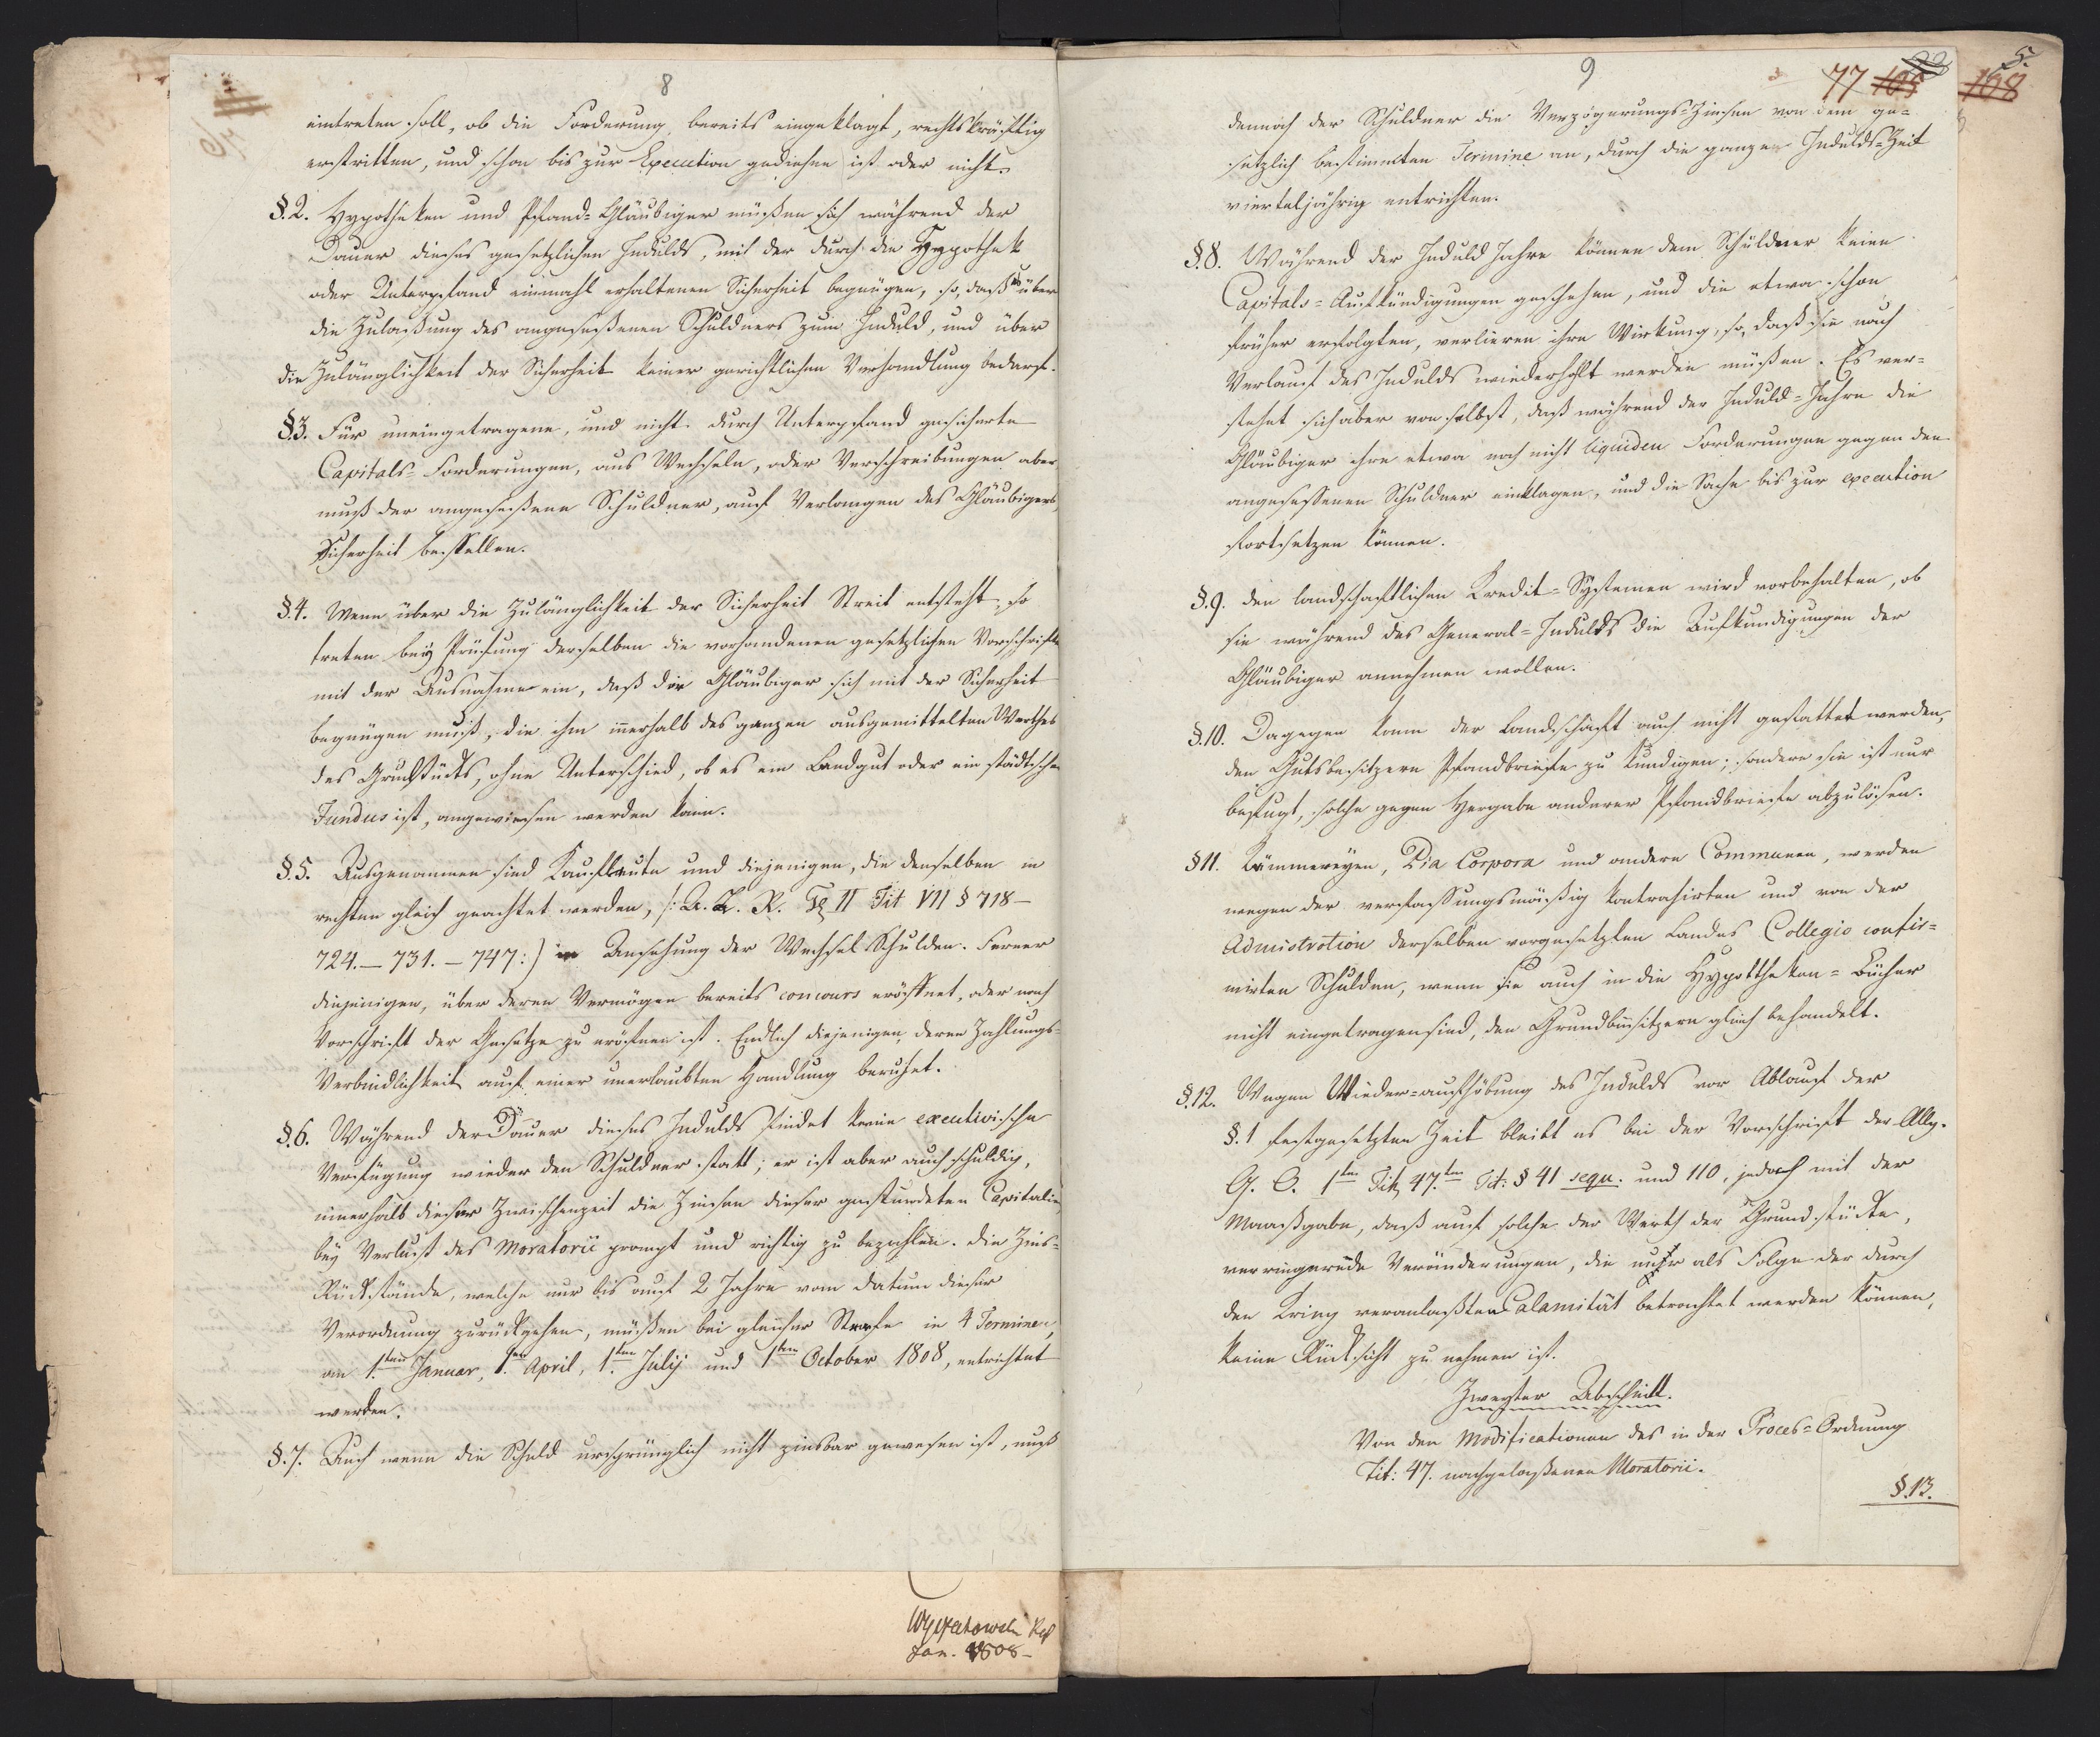 8
eintreten soll, ob die Forderung bereits eingeklagt, rechtskräftig
erstritten, und schon bis zur Execution gediehen ist oder nicht.
§.2. Hypotheken und Pfand-Gläubiger müßen sich während der
Dauer dieses gesetzlichen Indults, mit der durch die Hypothek
oder Unterpfand einmahl erhaltenen Sicherheit begnügen, so, daß es über
die Zulaßung des angeseßenen Schuldners zum Indult, und über
die Zulänglichkeit der Sicherheit keiner gerichtlichen Verhandlung bedarf.
§.3. Für uneingetragene, und nicht durch Unterpfand gesicherte
Capitals-Forderungen, aus Wechseln, oder Verschreibungen aber
muß der angeseßene Schuldner, auf Verlangen des Gläubigers,
Sicherheit bestellen.
§.4. Wenn über die Zulänglichkeit der Sicherheit Streit entsteht, so
treten bey Prüfung derselben die vorhandenen gesetzlichen Vorschriften
mit der Ausnahme ein, daß der Gläubiger sich mit der Sicherheit
begnügen muß, die ihm innerhalb des ganzen ausgemittelten Werthes
des Grundstücks, ohne Unterschied, ob es ein Landgut oder ein städtischer
Fundus ist, angewiesen werden kann.
§.5. Ausgenommen sind Kaufleute und diejenigen, die denselben in
rechten gleich geachtet werden, /: A. L. R. Th II Tit VII § 718–
724.– 731. – 747 :) in Ansehung der Wechsel Schulden. Ferner
diejenigen, über deren Vermögen bereits concours eröffnet, oder nach
Vorschrift der Gesetze zu eröfnen ist. Endlich diejenigen, deren Zahlungs-
Verbindlichkeit auf einer unerlaubten Handlung beruhet.
§.6. Während der Dauer dieses Indults findet keine executivische
Verfügung wieder den Schuldner statt; er ist aber auch schuldig,
innerhalb dieser Zwischenzeit die Zinsen dieser gestundeten Capitalien
bey Verlust des Moratorii prompt und richtig zu bezahlen. Die Zins-
Rückstände, welche nur bis auf 2 Jahre vom Datum dieser
Verordnung zurückgehen, müßen bei gleicher Strafe in 4 Terminen,
am 1.ten Januar, 1.ten April, 1.ten July und 1ten October 1808, entrichtet
werden.
§.7. Auch wenn die Schuld ursprünglich nicht zinsbar gewesen ist, muß
Jan. 1808–
9
77 105 108
5.
dennoch der Schuldner die Verzögerungs-Zinsen von dem ge-
setzlich bestimmten Termine an, durch die ganze Indults-Zeit
vierteljährig entrichten.
§.8. Während der Indult Jahre können dem Schuldner keine
Capitals-Aufkündigungen geschehen, und die etwa schon
früher erfolgten, verlieren ihre Wirkung, so, daß sie nach
Verlauf des Indults wiederhohlt werden müßen. Es ver-
stehet sich aber von selbst, daß während der Indult-Jahre die
Gläubiger ihre etwa noch nicht liquiden Forderungen gegen den
angesessenen Schuldner einklagen, und die Sache bis zur execution
fortsetzen können.
§.9. den landschaftlichen Kredit-Systemen wird vorbehalten, ob
sie während des General-Indults die Aufkundigungen der
Gläubiger annehmen wollen.
§.10. Dagegen kann der Landschaft auch nicht gestattet werden,
den Gutsbesitzern Pfandbriefe zu kündigen; sondern sie ist nur
befugt, solche gegen Hergabe anderer Pfandbriefe abzulösen.
§11. Kämmereyen, Pia Corpora und andere Communen, werden
wegen der verfassungsmäßig kontrahirten und von der
Admistrotion derselben vorgesetzten Landes Collegio confir-
mirten Schulden, wenn sie auch in die Hypottheken-Bücher
nicht eingetragen sind, den Grundbesitzern gleich behandelt.
§.12. Wegen Wieder-aufhöbung des Indults vor Ablauf der
§.1 festgesetzten Zeit bleibt es bei der Vorschrift der Allg.
G. O. 1ten Th 47.ten Tit: § 41 sequ. und 110, jedoch mit der
Maasgabe, daß auf solche der Werth der Grundstücke,
verringernde Veränderungen, die nur als Folge der durch
den Krieg veranlaßten Calamität betrachtet werden können,
keine Rücksicht zu nehmen ist.
Zweyter Abschnitt.
Von den Modificationen des in der Proces-Ordnung
Tit: 47. nachgelaßenen Moratorii.
§.13.